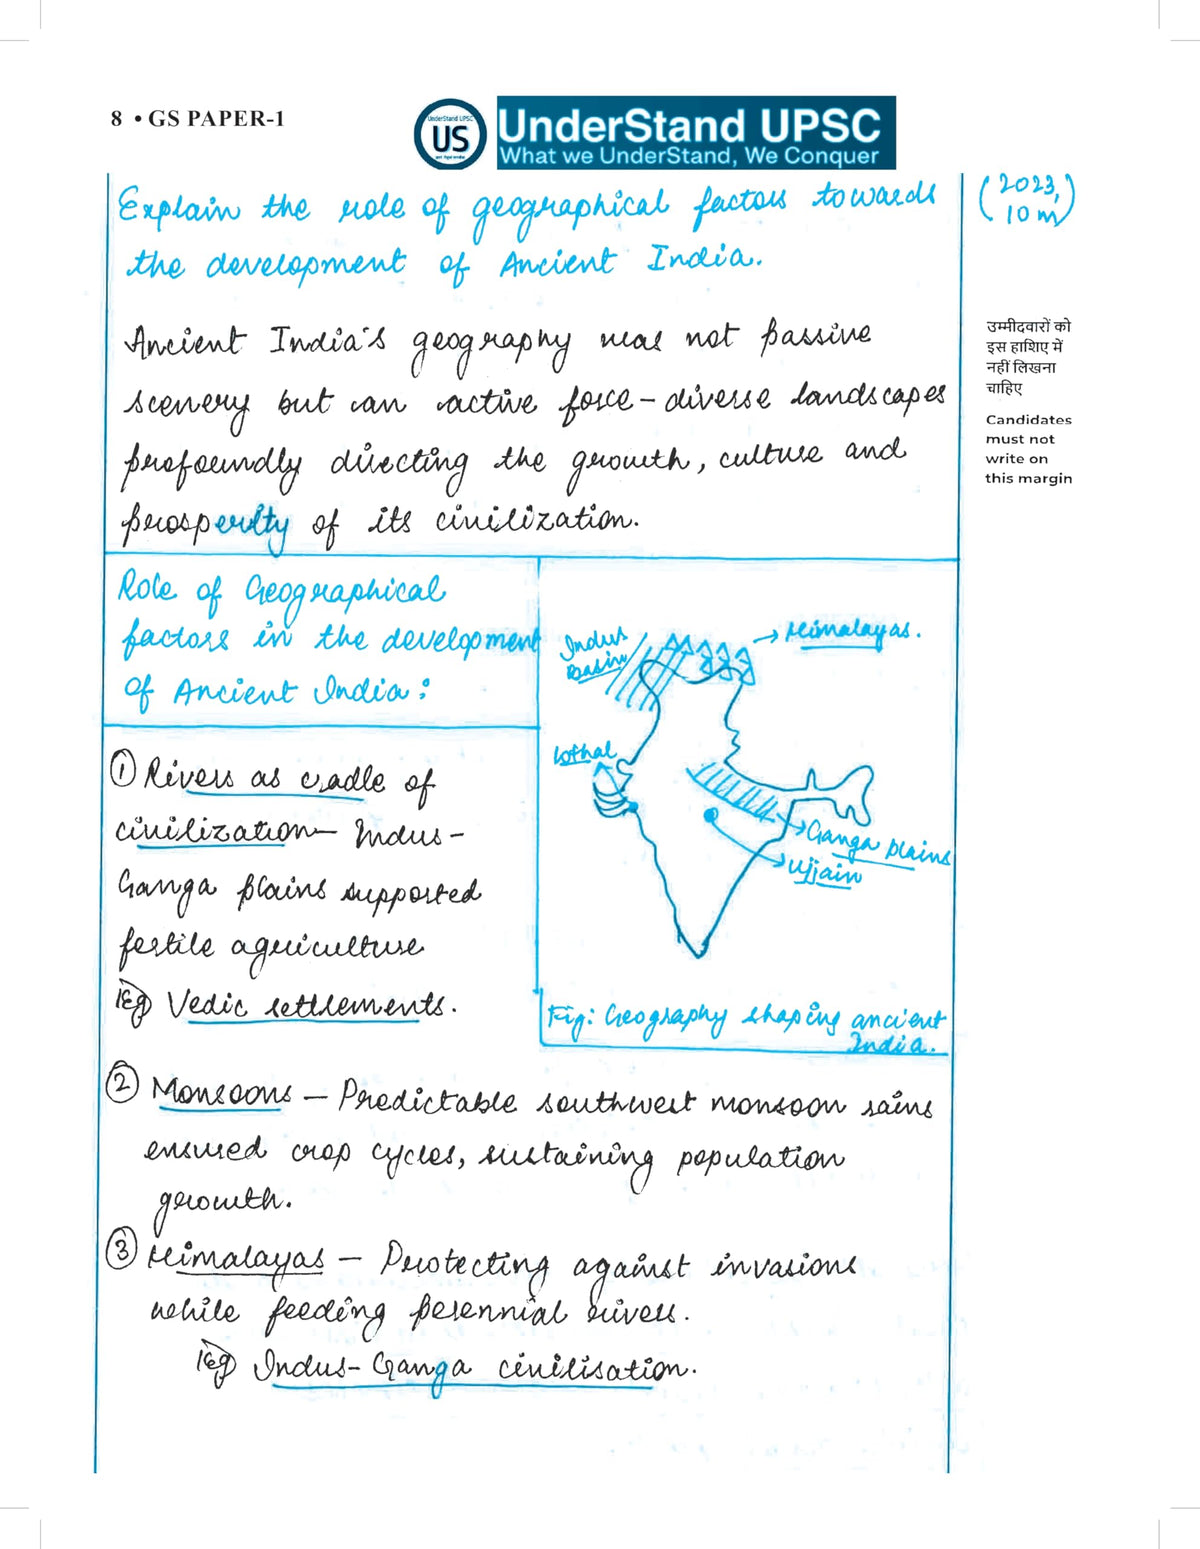 8 • GS PAPER-1
UnderStand UPSC
US
UnderStand UPSC
What we UnderStand, We Conquer
Explain the role of geographical factors towards
the development of Ancient India.
(2023,
10 m)
उम्मीदवारों को
इस हाशिए में
नहीं लिखना
चाहिए
Candidates
must not
write on
this margin
Ancient India's geography was not passive
scenery but an active force - diverse landscapes
profoundly directing the growth, culture and
prosperity of its civilization.
Role of Geographical
factors in the development
of Ancient India:
① Rivers as cradle of
civilization - Indus-
Ganga plains supported
fertile agriculture
Eg Vedic settlements.
Indus
Basin
→ Himalayas.
Lothal
→ Ganga plains
→ Ujjain
Fig: Geography shaping ancient
India.
② Monsoons - Predictable southwest monsoon rains
ensured crop cycles, sustaining population
growth.
③ Himalayas - Protecting against invasions
while feeding perennial rivers.
Eg Indus-Ganga civilisation.